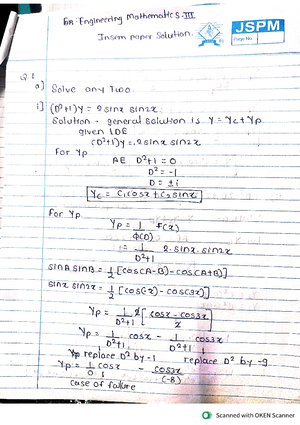 Sub: Engineering Mathematics-III
JSPM
Page No.
Insem paper Solution.
Q.1
a] Solve any Two.
i] (D²+1)y = 2sinx sin2x.
Solution - General solution is y = yc + yp.
given LDE
(D²+1)y = 2sinx sin2x
For yp
AE D²+1 = 0
D² = -1
D = ±i
yc = C1cosx + C2sinx
For yp
yp = 1/Φ(D) F(x)
= 1/D²+1 2·sinx·sin2x
sinA sinB = 1/2 [cos(A-B) - cos(A+B)]
sinx sin2x = 1/2 [cos(-x) - cos(3x)]
yp = 1/D²+1 2[cosx - cos3x/2]
yp = 1/D²+1 cosx - 1/D²+1 cos3x
replace D² by -1 replace D² by -9
yp = 1/0 cosx - cos3x/(-8)
case of failure
Scanned with OKEN Scanner